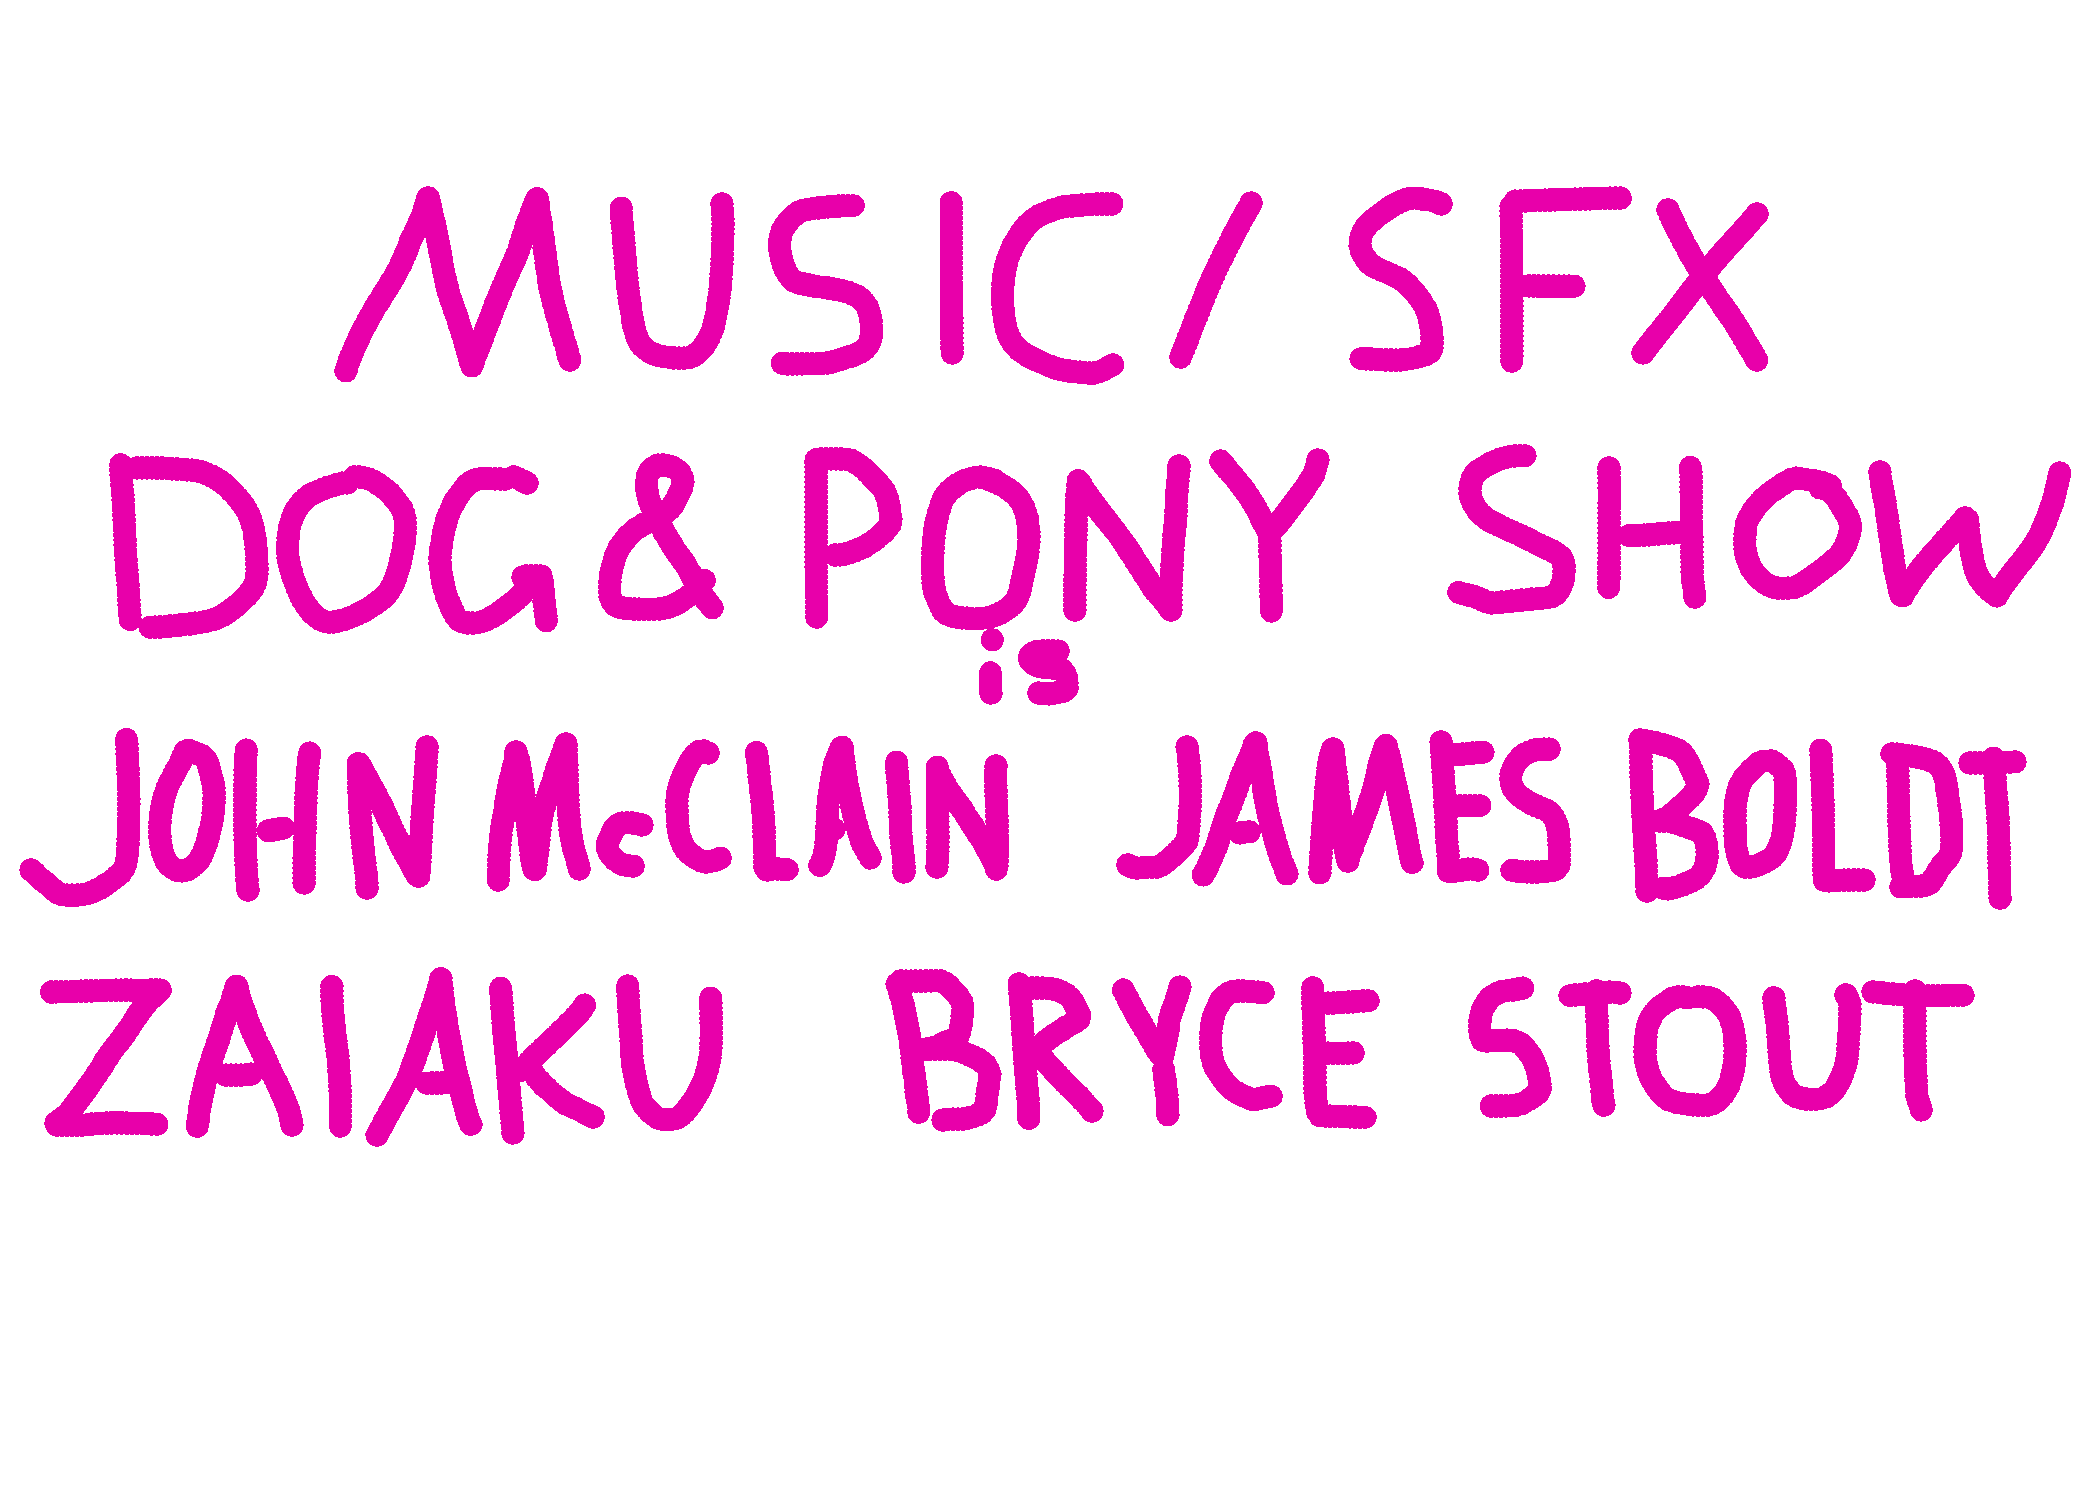 MUSIC/SFX
DOG & PONY SHOW
is
JOHN McCLAIN JAMES BOLDT
ZAIAKU BRYCE STOUT